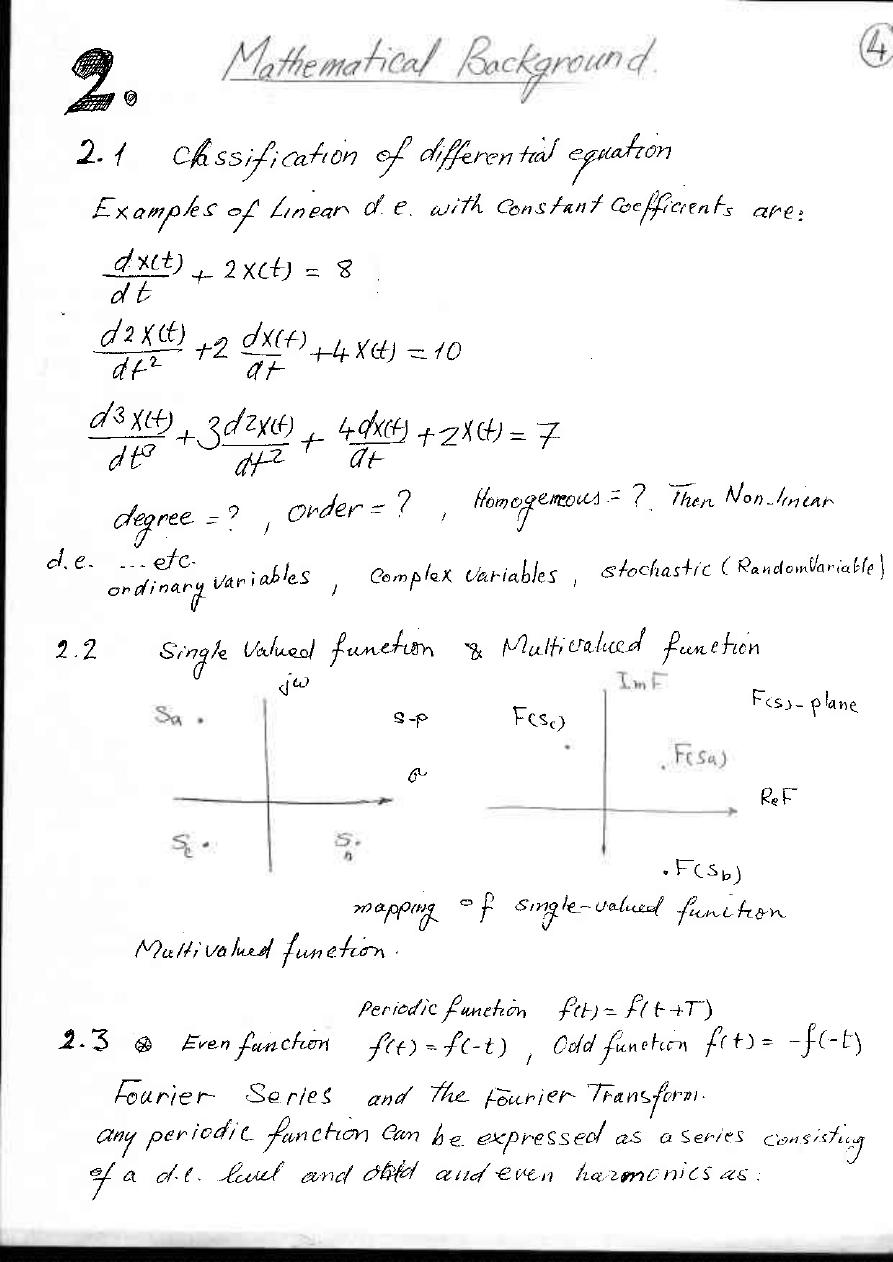 4
2. Mathematical Background.
2.1 Classification of differential equation
Examples of Linear d.e. with Constant Coefficients are:
dx(t)/dt + 2x(t) = 8
d2x(t)/dt² + 2 dx(t)/dt + 4x(t) = 10
d3x(t)/dt³ + 3 d2x(t)/dt² + 4dx(t)/dt + 2x(t) = 7
degree = ? , order = ? , Homogeneous = ? . Then Non-linear
d.e. ... etc.
ordinary variables , Complex variables , stochastic (Random Variable)
2.2 Single Valued function & Multivalued function
jω Im F
Sa . s-p F(Sc) F(s)-plane
σ . F(Sa)
Re F
Sc .
. F(Sb)
mapping of single-valued function
Multivalued function.
Periodic function f(t) = f(t+T)
2.3 ⊛ Even function f(t) = f(-t) , Odd function f(t) = -f(-t)
Fourier Series and the Fourier Transform.
any periodic function can be expressed as a series consisting
of a d.c. level and odd and even harmonics as: